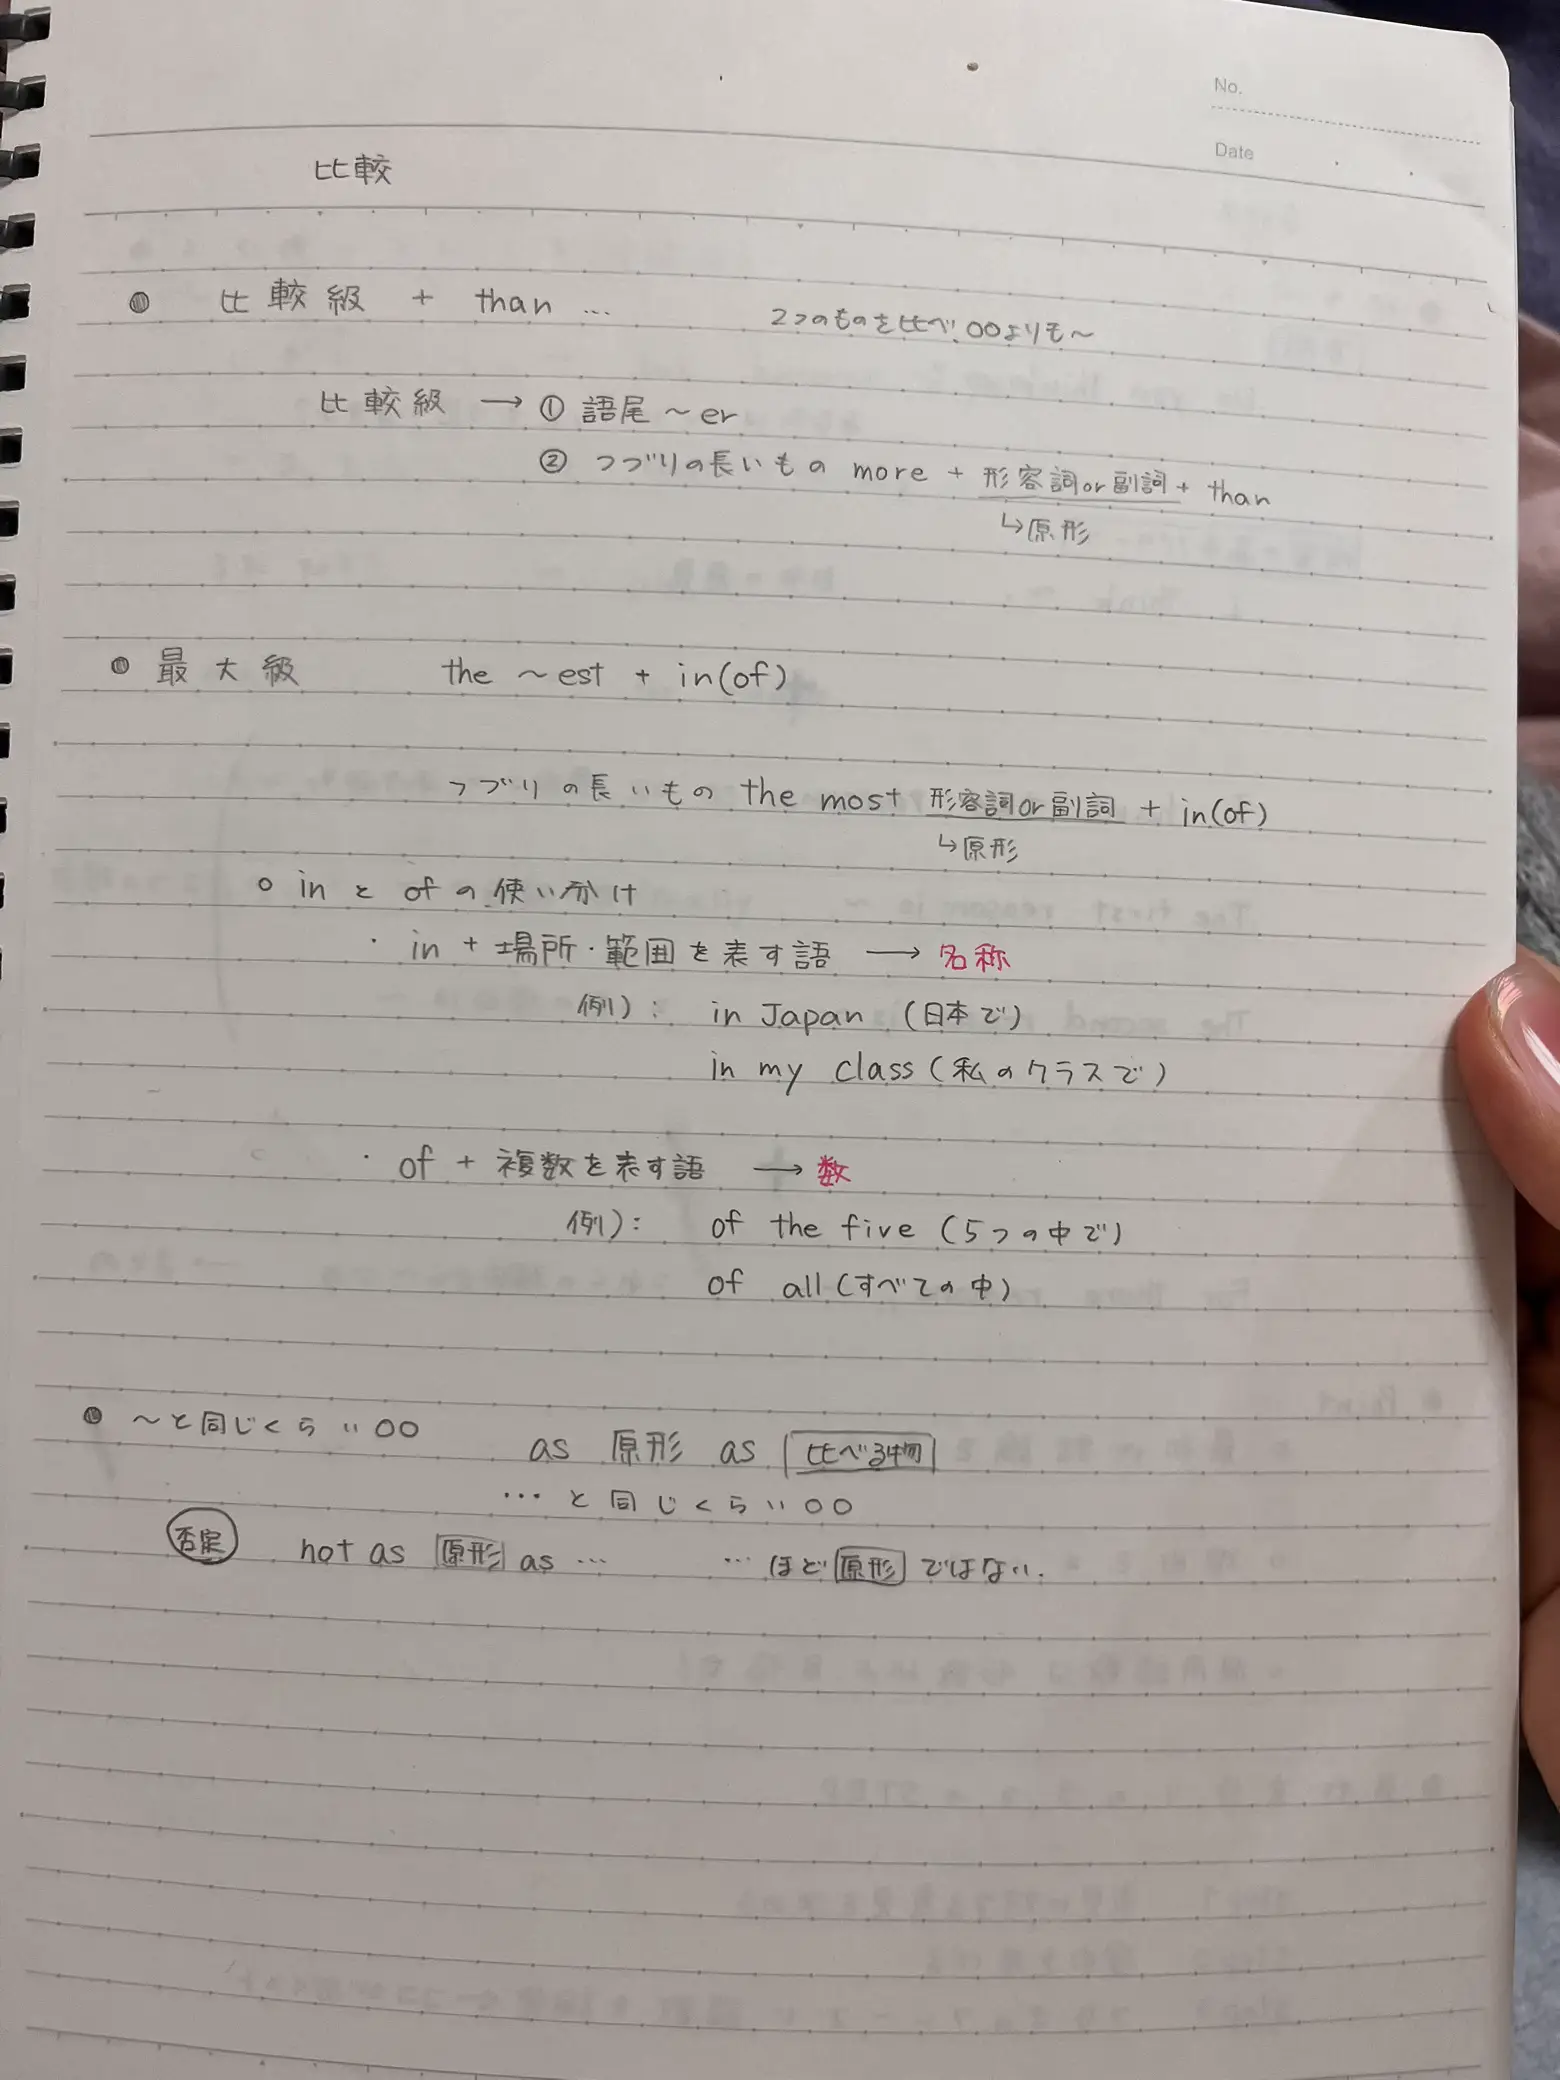 No.
Date
比較
比較級 + than …
2つのものを比べ〇〇よりも〜
比較級 → ① 語尾〜er
② つづりの長いもの more + 形容詞or副詞 + than
↳原形
最大級 the 〜est + in(of)
つづりの長いもの the most 形容詞or副詞 + in(of)
↳原形
in と of の使い分け
・in + 場所・範囲を表す語 → 名称
例): in Japan (日本で)
in my class (私のクラスで)
・of + 複数を表す語 → 数
例): of the five (5つの中で)
of all (すべての中)
〜と同じくらい〇〇 as 原形 as 比べる物
…と同じくらい〇〇
否定 not as 原形 as … …ほど原形ではない.